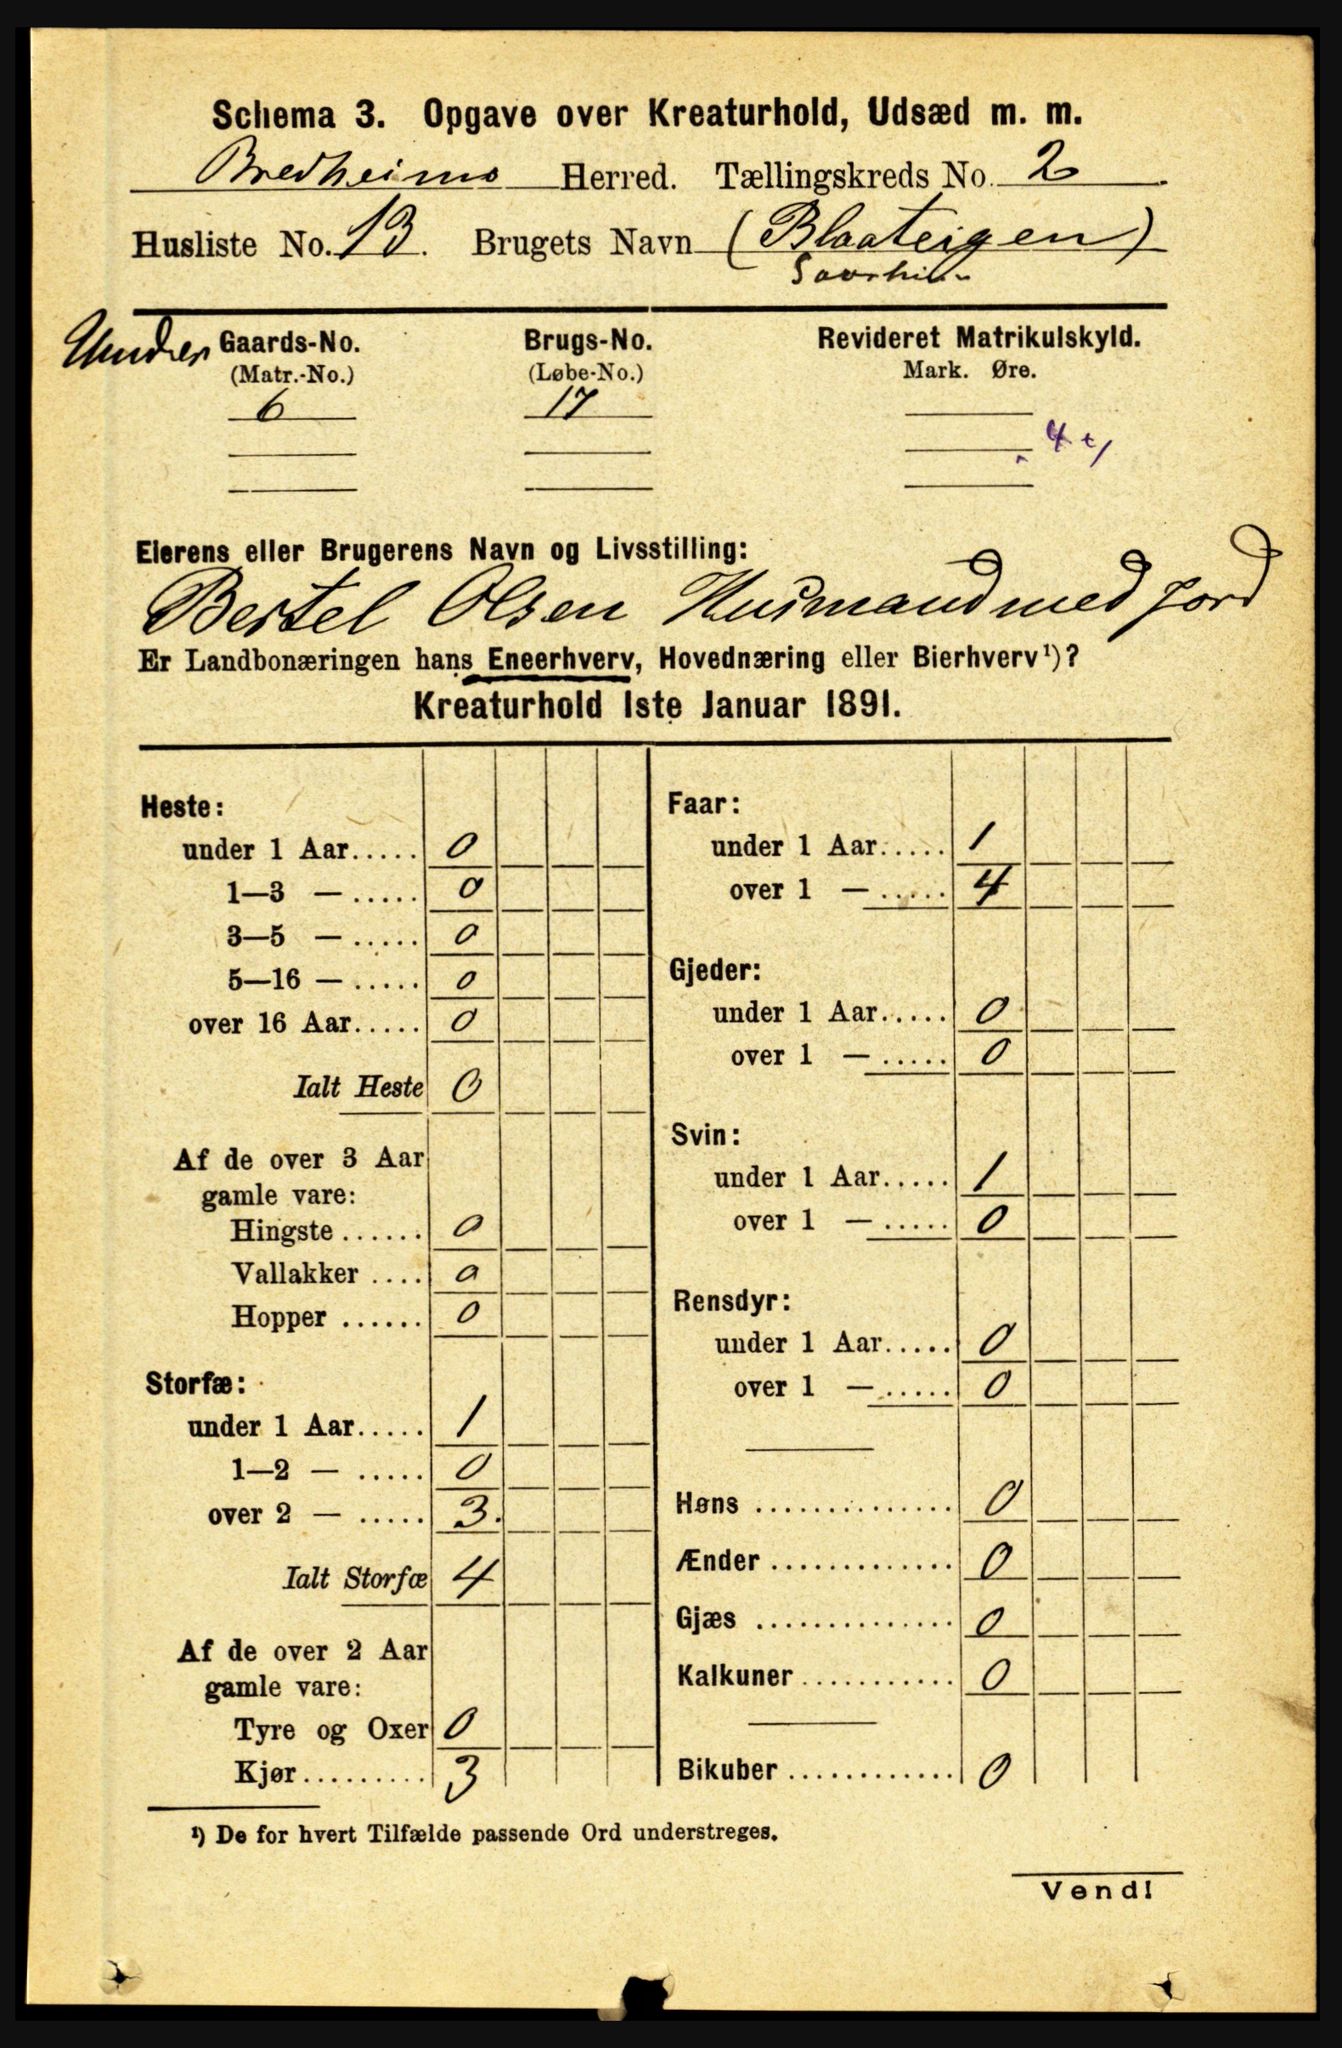 Schema 3. Opgave over Kreaturhold, Udsæd m. m.
Bredheims Herred. Tællingskreds No. 2.
Husliste No. 13. Brugets Navn (Blaateigen)
Under
Gaards-No. Brugs-No. Revideret Matrikulskyld.
(Matr.-No.) (Løbe-No.) Mark. Øre.
6 17
Eierens eller Brugerens Navn og Livsstilling:
Bertel Olsen Husmand med jord
Er Landbonæringen hans Eneerhverv, Hovednæring eller Bierhverv¹)?
Kreaturhold 1ste Januar 1891.
Heste:
under 1 Aar..... 0
1—3 — ..... 0
3—5 — ..... 0
5—16 — ..... 0
over 16 Aar..... 0
Ialt Heste 0
Af de over 3 Aar
gamle vare:
Hingste ...... 0
Vallakker .... 0
Hopper ...... 0
Storfæ:
under 1 Aar..... 1
1—2 — ..... 0
over 2 — ..... 3.
Ialt Storfæ 4
Af de over 2 Aar
gamle vare:
Tyre og Oxer 0
Kjør.......... 3
Faar:
under 1 Aar..... 1
over 1 — ..... 4
Gjeder:
under 1 Aar..... 0
over 1 — ..... 0
Svin:
under 1 Aar..... 1
over 1 — ..... 0
Rensdyr:
under 1 Aar..... 0
over 1 — ..... 0
Høns .............. 0
Ænder ............. 0
Gjæs .............. 0
Kalkuner ........... 0
Bikuber ............ 0
¹) De for hvert Tilfælde passende Ord understreges.
Vend!